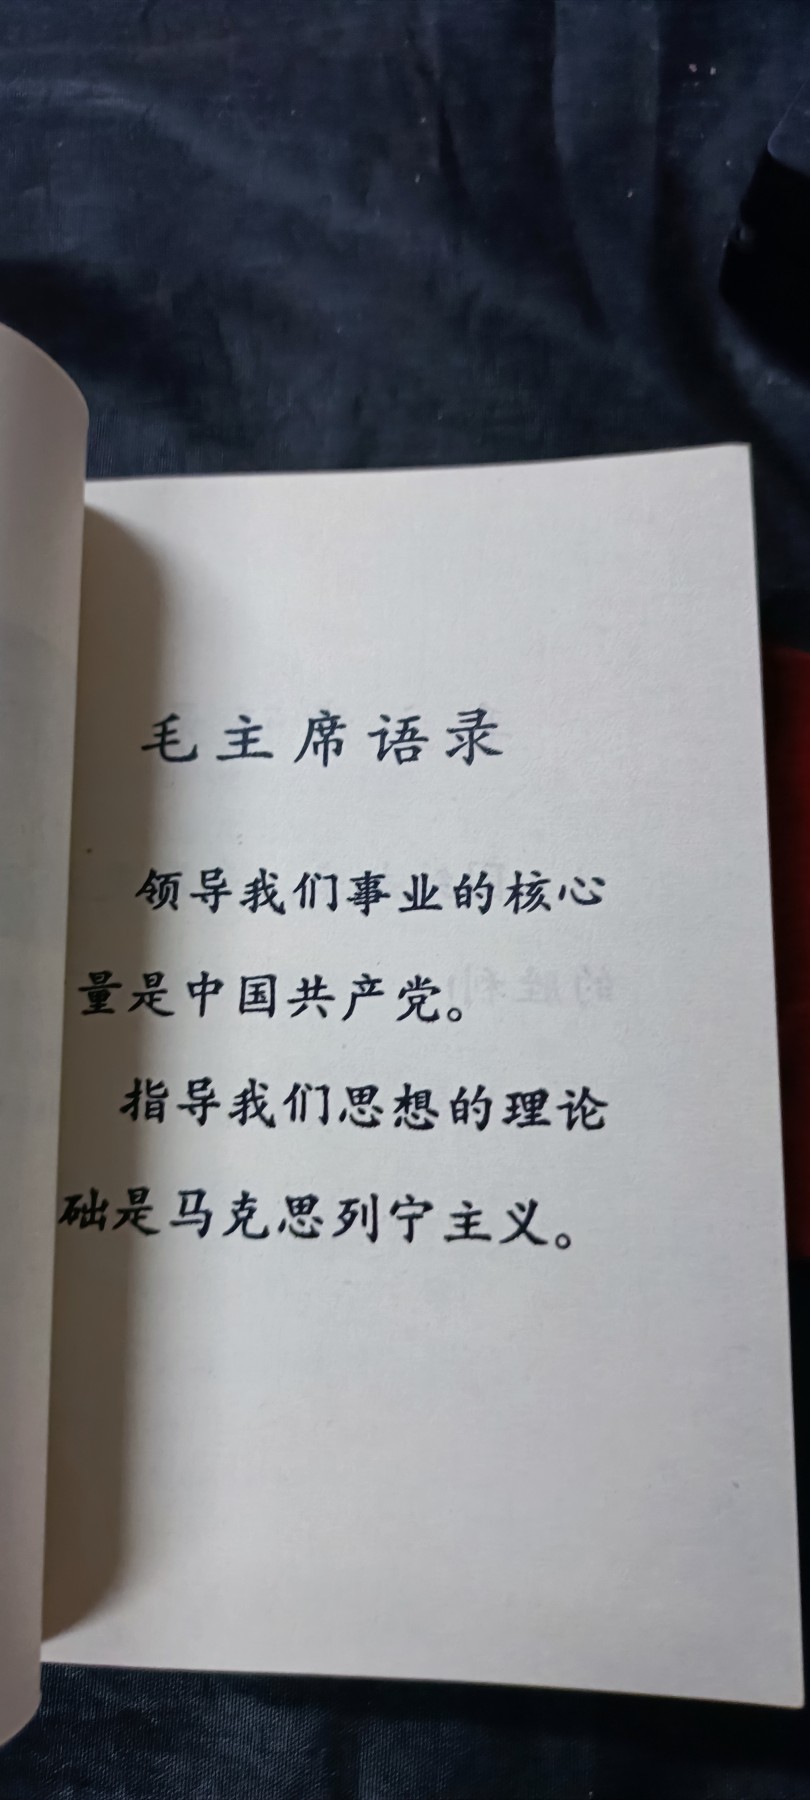 毛主席语录
领导我们事业的核心
量是中国共产党。
指导我们思想的理论
础是马克思列宁主义。
的胜利